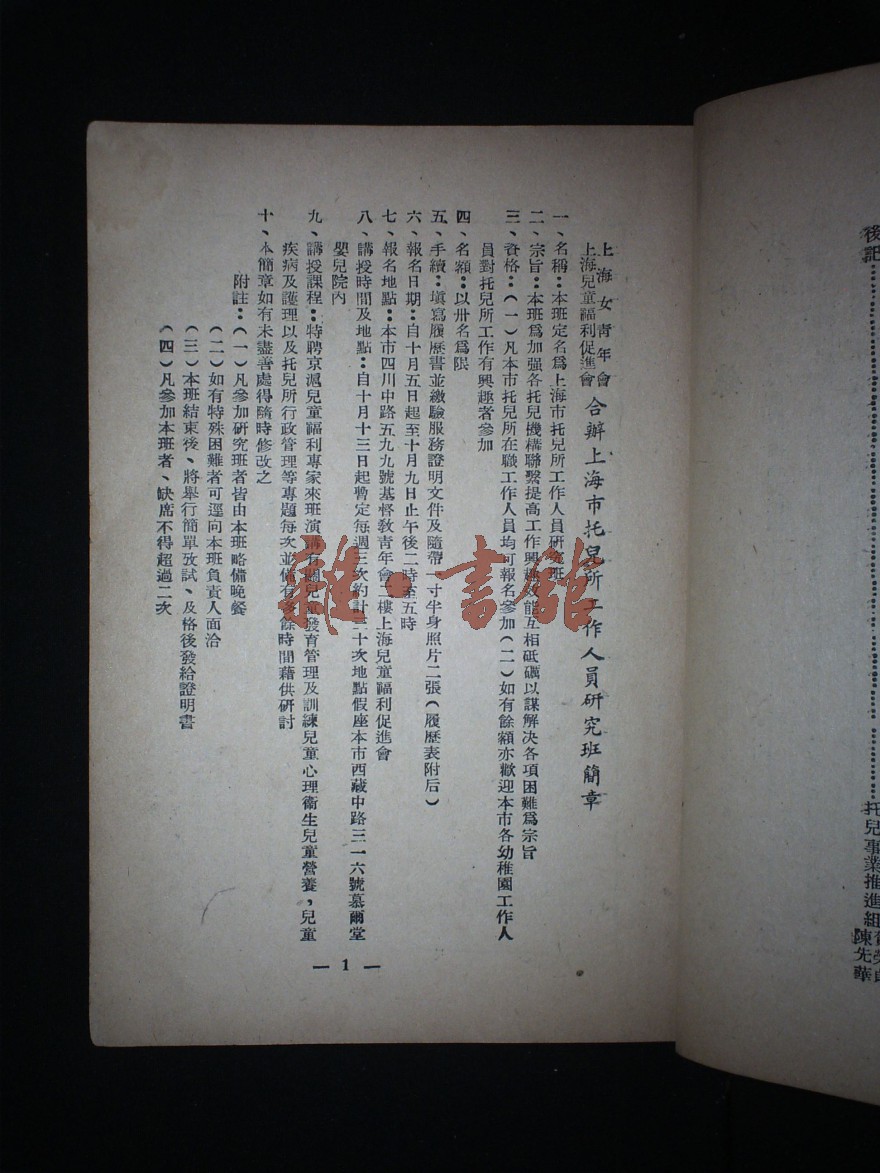 後記
托兒事業推進組
陳先華
上海女青年會
上海兒童福利促進會
合辦上海市托兒所工作人員研究班簡章
一、名稱：本班定名爲上海市托兒所工作人員研究班
二、宗旨：本班爲加强各托兒機構聯繫提高工作興趣效能互相砥礪以謀解决各項困難爲宗旨
三、資格：(一)凡本市托兒所在職工作人員均可報名參加(二)如有餘額亦歡迎本市各幼稚園工作人
員對托兒所工作有興趣者參加
四、名額：以卅名爲限
五、手續：塡寫履歷書並繳驗服務證明文件及隨帶一寸半身照片二張(履歷表附后)
六、報名日期：自十月五日起至十月九日止午後二時至五時
七、報名地點：本市四川中路五九九號基督敎青年會二樓上海兒童福利促進會
八、講授時間及地點：自十月十三日起暫定每週三次約計二十次地點假座本市西藏中路三一六號慕爾堂
嬰兒院內
九、講授課程：特聘京滬兒童福利專家來班演講有關兒童發育管理及訓練兒童心理衞生兒童營養，兒童
疾病及護理以及托兒所行政管理等專題每次並備有多餘時間藉供硏討
十、本簡章如有未盡善處得隨時修改之
附註：(一)凡參加研究班者皆由本班略備晚餐
(二)如有特殊困難者可逕向本班負責人面洽
(三)本班結束後、將舉行簡單攷試、及格後發給證明書
(四)凡參加本班者、缺席不得超過二次
— 1 —
雜·書館